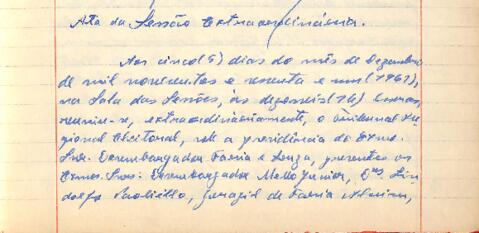 Ata da Sessão Extraordinária.
Aos cinco (5) dias do mês de Dezembro
de mil novecentos e sessenta e um (1961),
na Sala das Sessões, às dezesseis (16) horas,
reuniu-se, extraordinariamente, o Tribunal Re-
gional Eleitoral, sob a presidência do Exmo.
Snr. Desembargador Faria e Souza, presentes os
Exmos. Snrs. Desembargador Mello Junior, Drs. Lin-
dolfo Paolielo, de Faria Alvim,